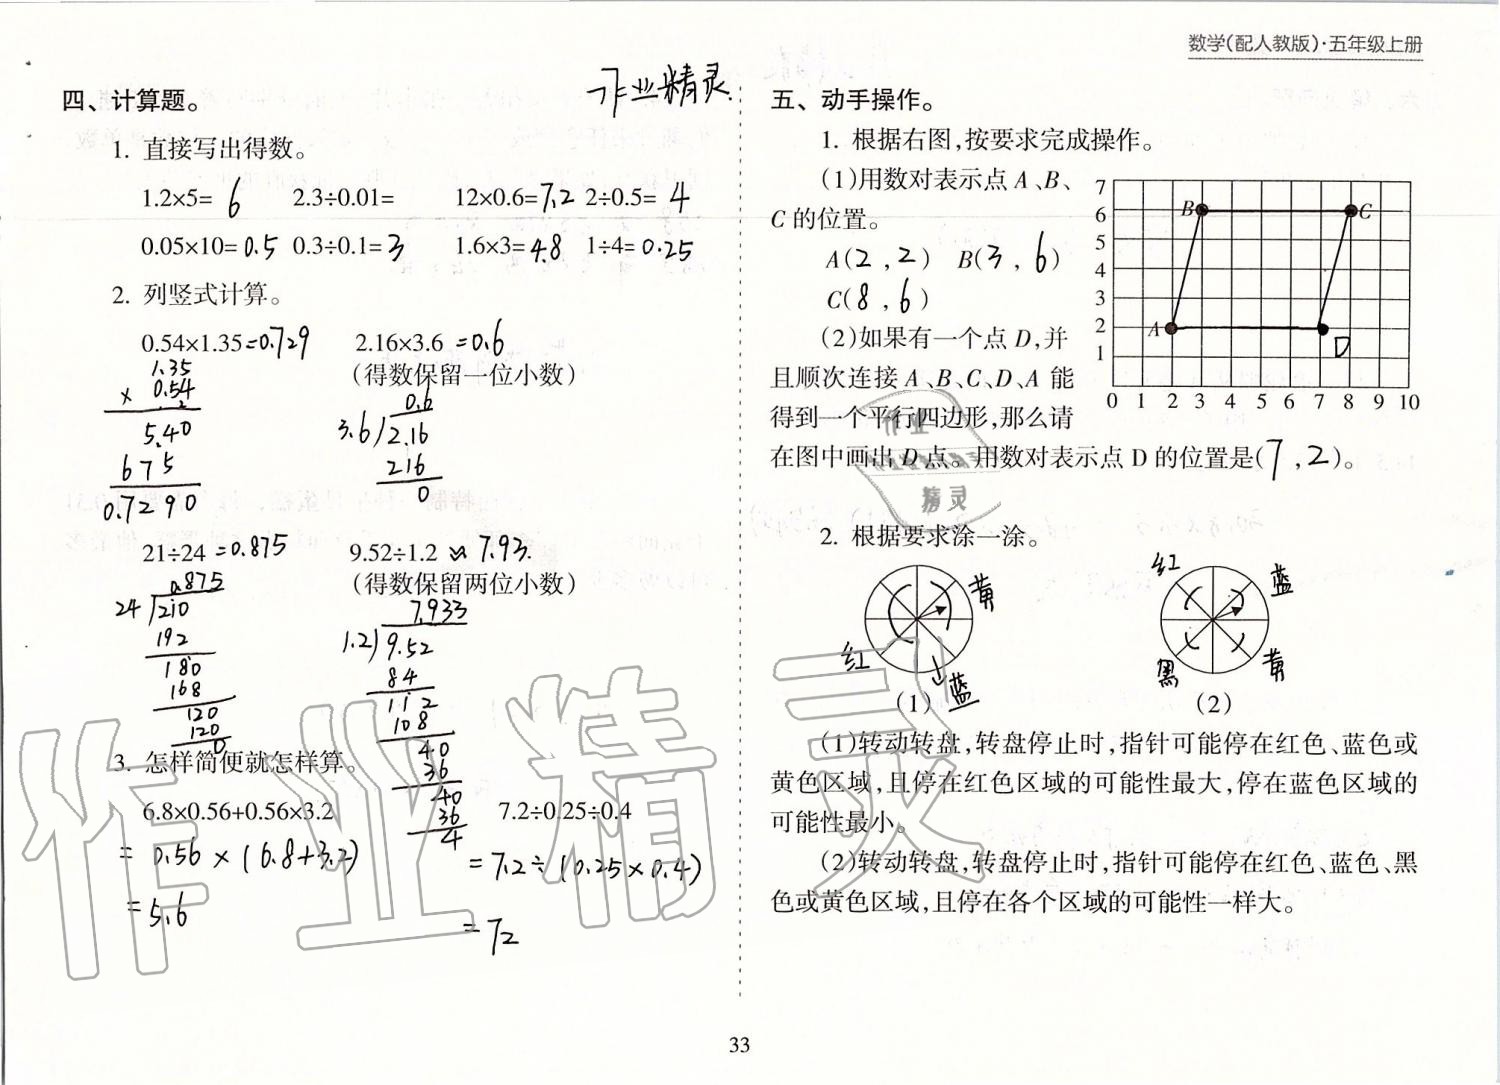 数学(配人教版)·五年级上册
作业精灵
四、计算题。
1. 直接写出得数。
1.2×5= 6 2.3÷0.01= 12×0.6=7.2 2÷0.5= 4
0.05×10=0.5 0.3÷0.1=3 1.6×3=4.8 1÷4=0.25
2. 列竖式计算。
0.54×1.35=0.729 2.16×3.6 =0.6
(得数保留一位小数)
1.35
× 0.54
5.40
675
0.7290
0.6
3.6 2.16
216
0
21÷24=0.875 9.52÷1.2 ≈ 7.93.
(得数保留两位小数)
0.875
24 210
192
180
168
120
120
0
7.933
1.2 9.52
84
112
108
40
36
40
36
4
3. 怎样简便就怎样算。
6.8×0.56+0.56×3.2 7.2÷0.25÷0.4
= 0.56×(6.8+3.2) = 7.2÷(0.25×0.4)
=5.6 =72
五、动手操作。
1. 根据右图,按要求完成操作。
(1)用数对表示点 A、B、
C 的位置。
A(2,2) B(3,6)
C(8,6)
(2)如果有一个点 D,并
且顺次连接 A、B、C、D、A 能
得到一个平行四边形,那么请
在图中画出 D 点。用数对表示点 D 的位置是(7,2)。
7
6 B C
5
4
3
2 A
D
1
0 1 2 3 4 5 6 7 8 9 10
2. 根据要求涂一涂。
黄 红 蓝
红 蓝 黑 黄
(1) (2)
(1)转动转盘,转盘停止时,指针可能停在红色、蓝色或
黄色区域,且停在红色区域的可能性最大,停在蓝色区域的
可能性最小。
(2)转动转盘,转盘停止时,指针可能停在红色、蓝色、黑
色或黄色区域,且停在各个区域的可能性一样大。
作业精灵
精灵
33